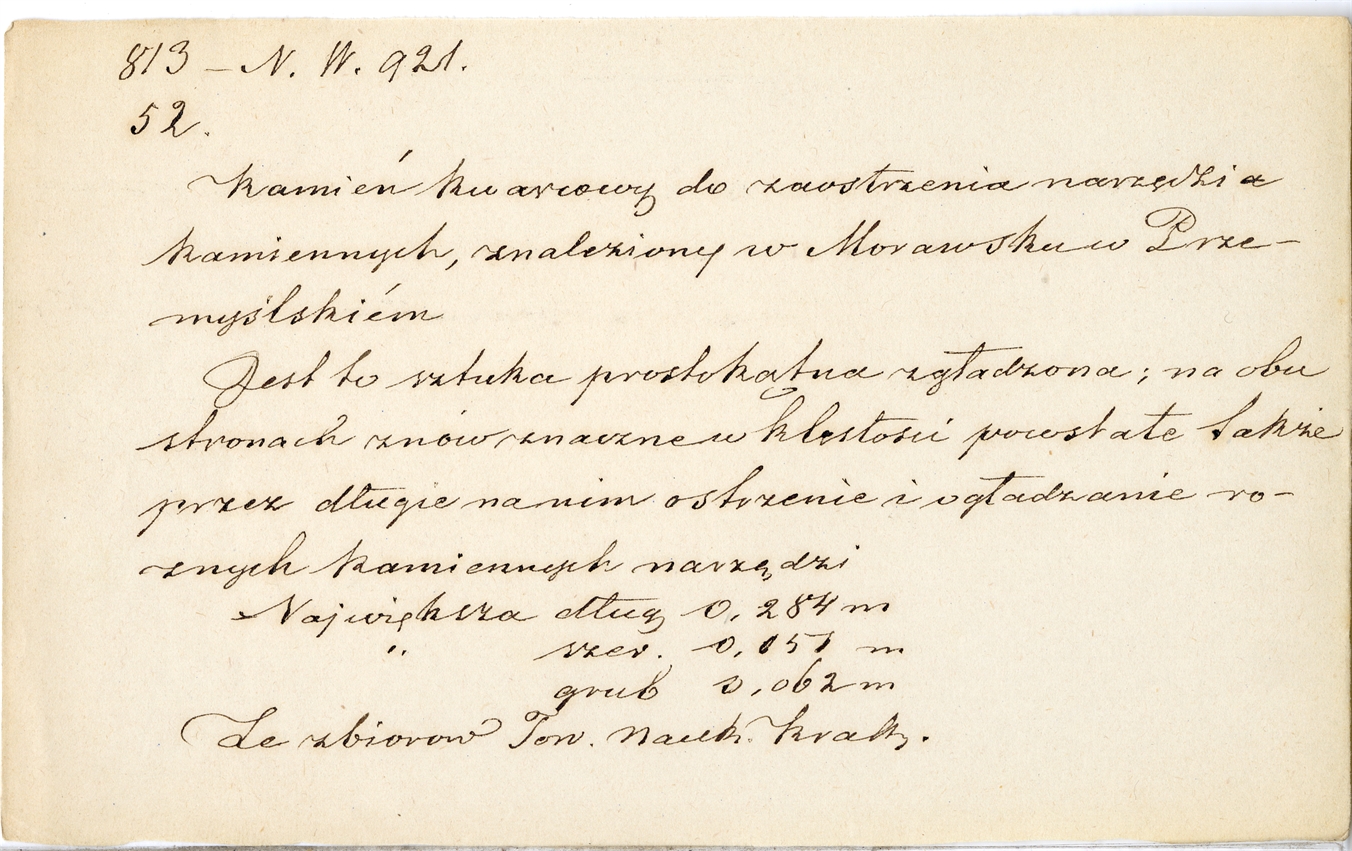 813 – N. W. 921.
52.
Kamień kwarcowy do zaostrzenia narzędzia
kamiennych, znaleziony w Morawsku w Prze-
myślskiém
Jest to sztuka prostokątna zgładzona; na obu
stronach znów znaczne wklęsłości powstałe także
przez długie na nim ostrzenie i ogładzanie ro-
znych kamiennych narzędzi
Największa dług 0,284 m
" szer. 0,151 m
grub 0,062 m
Ze zbiorow Tow. Nauk. Krak.